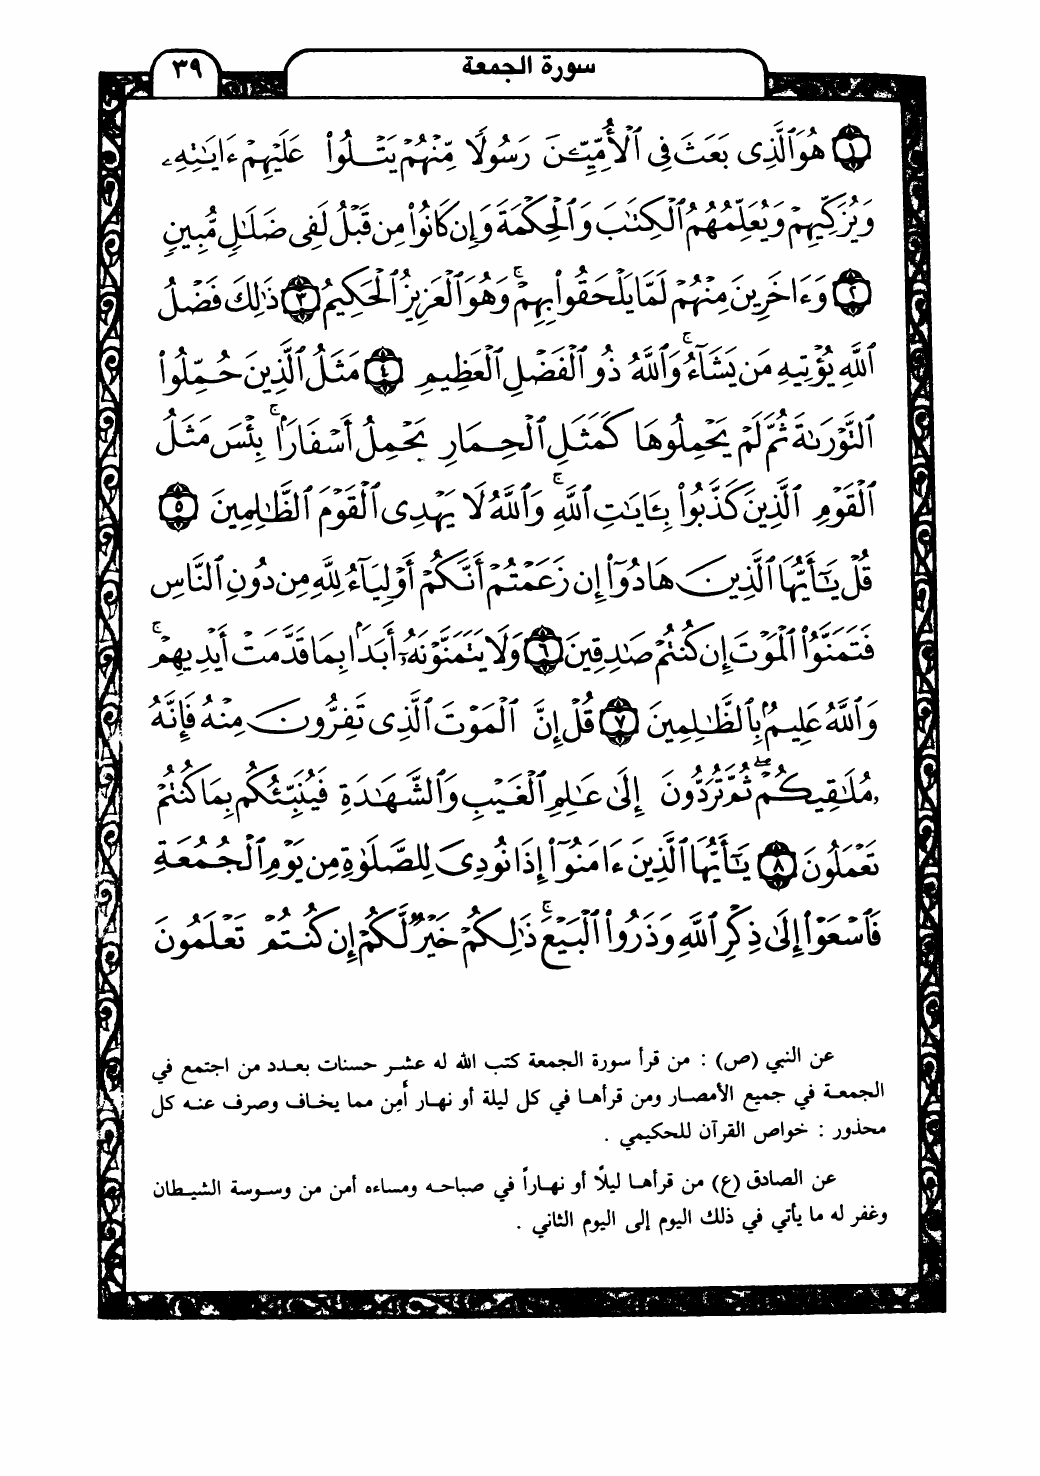 سورة الجمعة
٣٩
١ هُوَ ٱلَّذِى بَعَثَ فِى ٱلْأُمِّيِّـۧنَ رَسُولًا مِّنْهُمْ يَتْلُوا۟ عَلَيْهِمْ ءَايَـٰتِهِۦ
وَيُزَكِّيهِمْ وَيُعَلِّمُهُمُ ٱلْكِتَـٰبَ وَٱلْحِكْمَةَ وَإِن كَانُوا۟ مِن قَبْلُ لَفِى ضَلَـٰلٍ مُّبِينٍ
٢ وَءَاخَرِينَ مِنْهُمْ لَمَّا يَلْحَقُوا۟ بِهِمْ ۚ وَهُوَ ٱلْعَزِيزُ ٱلْحَكِيمُ ٣ ذَٰلِكَ فَضْلُ
ٱللَّهِ يُؤْتِيهِ مَن يَشَآءُ ۚ وَٱللَّهُ ذُو ٱلْفَضْلِ ٱلْعَظِيمِ ٤ مَثَلُ ٱلَّذِينَ حُمِّلُوا۟
ٱلتَّوْرَىٰةَ ثُمَّ لَمْ يَحْمِلُوهَا كَمَثَلِ ٱلْحِمَارِ يَحْمِلُ أَسْفَارًۢا ۚ بِئْسَ مَثَلُ
ٱلْقَوْمِ ٱلَّذِينَ كَذَّبُوا۟ بِـَٔايَـٰتِ ٱللَّهِ ۚ وَٱللَّهُ لَا يَهْدِى ٱلْقَوْمَ ٱلظَّـٰلِمِينَ ٥
قُلْ يَـٰٓأَيُّهَا ٱلَّذِينَ هَادُوٓا۟ إِن زَعَمْتُمْ أَنَّكُمْ أَوْلِيَآءُ لِلَّهِ مِن دُونِ ٱلنَّاسِ
فَتَمَنَّوُا۟ ٱلْمَوْتَ إِن كُنتُمْ صَـٰدِقِينَ ٦ وَلَا يَتَمَنَّوْنَهُۥٓ أَبَدًۢا بِمَا قَدَّمَتْ أَيْدِيهِمْ ۚ
وَٱللَّهُ عَلِيمٌۢ بِٱلظَّـٰلِمِينَ ٧ قُلْ إِنَّ ٱلْمَوْتَ ٱلَّذِى تَفِرُّونَ مِنْهُ فَإِنَّهُۥ
مُلَـٰقِيكُمْ ۖ ثُمَّ تُرَدُّونَ إِلَىٰ عَـٰلِمِ ٱلْغَيْبِ وَٱلشَّهَـٰدَةِ فَيُنَبِّئُكُم بِمَا كُنتُمْ
تَعْمَلُونَ ٨ يَـٰٓأَيُّهَا ٱلَّذِينَ ءَامَنُوٓا۟ إِذَا نُودِىَ لِلصَّلَوٰةِ مِن يَوْمِ ٱلْجُمُعَةِ
فَٱسْعَوْا۟ إِلَىٰ ذِكْرِ ٱللَّهِ وَذَرُوا۟ ٱلْبَيْعَ ۚ ذَٰلِكُمْ خَيْرٌ لَّكُمْ إِن كُنتُمْ تَعْلَمُونَ
عن النبي (ص) : من قرأ سورة الجمعة كتب الله له عشر حسنات بعدد من اجتمع في
الجمعة في جميع الأمصار ومن قرأها في كل ليلة أو نهار أمِن مما يخاف وصرف عنه كل
محذور : خواص القرآن للحكيمي .
عن الصادق (ع) من قرأها ليلاً أو نهاراً في صباحه ومساءه أمن من وسوسة الشيطان
وغفر له ما يأتي في ذلك اليوم إلى اليوم الثاني .